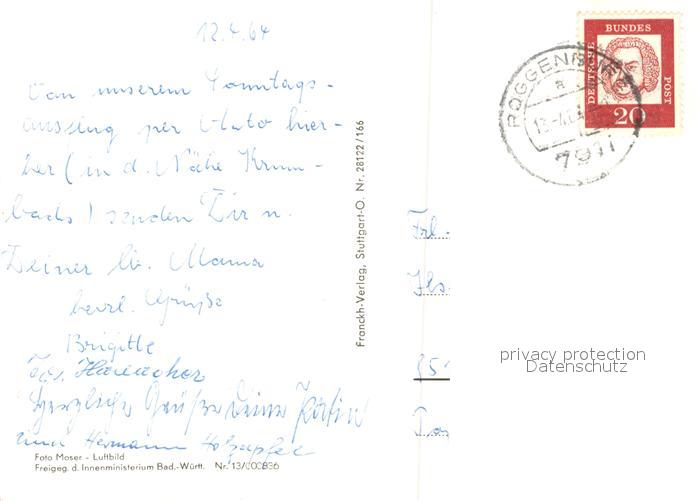 12.4.64
Von unserem Sonntags-
ausflug per Auto hier-
her (in d. Nähe Krum-
bachs) senden Dir u.
Deiner lb. Mama
herzl. Grüße
Brigitte
Herzliche Grüße Deine
und Hermann Holzapfel
Foto Moser - Luftbild
Freigeg. d. Innenministerium Bad.-Württ. Nr. 13/000836
Franckh-Verlag, Stuttgart-O. Nr. 28122/166
DEUTSCHE BUNDES POST
20
ROGGENBURG
a
7911
Frl.
Ils
privacy protection
Datenschutz